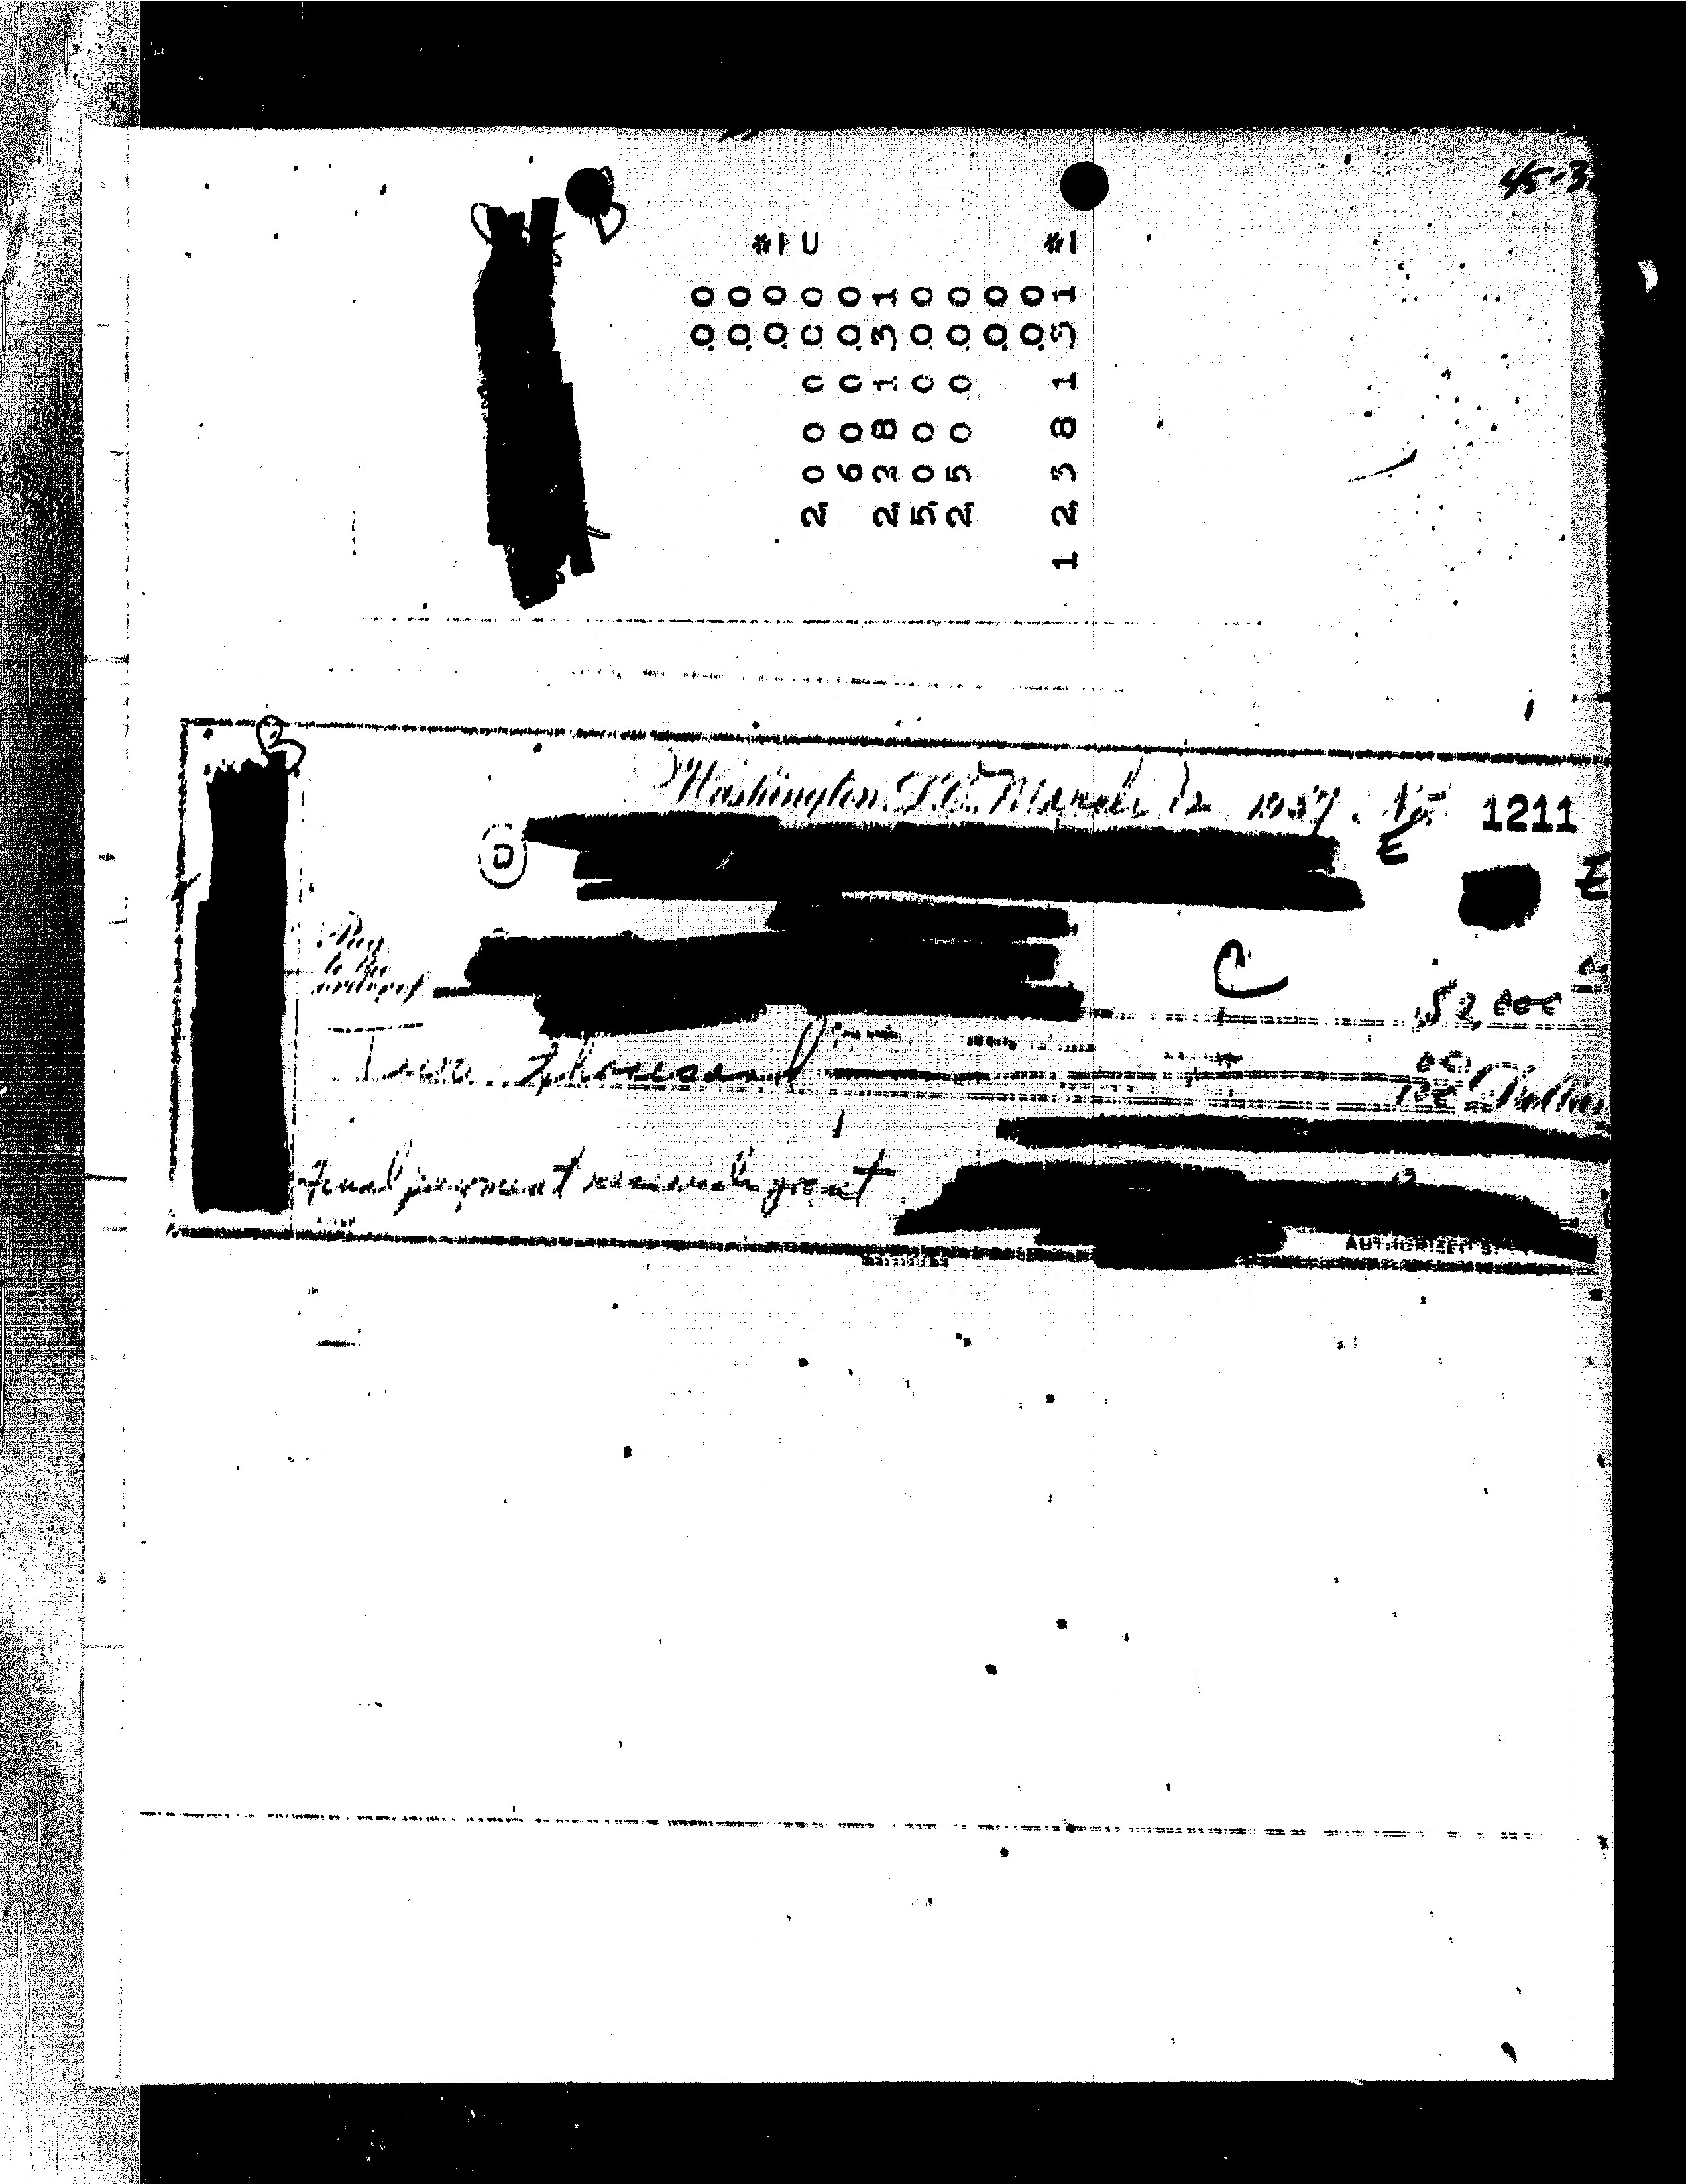 45-3
.00
.00
.00
2,000.00
600.00
2,381.31
5,000.00
2,500.00
.00
.00
12,381.31
Washington, D.C. March 12 1957. No. 1211
D
E
E
Pay
to the
order of
C
$2,000
Two Thousand
00
100 Dollars
Final payment research grant
AUTHORIZED